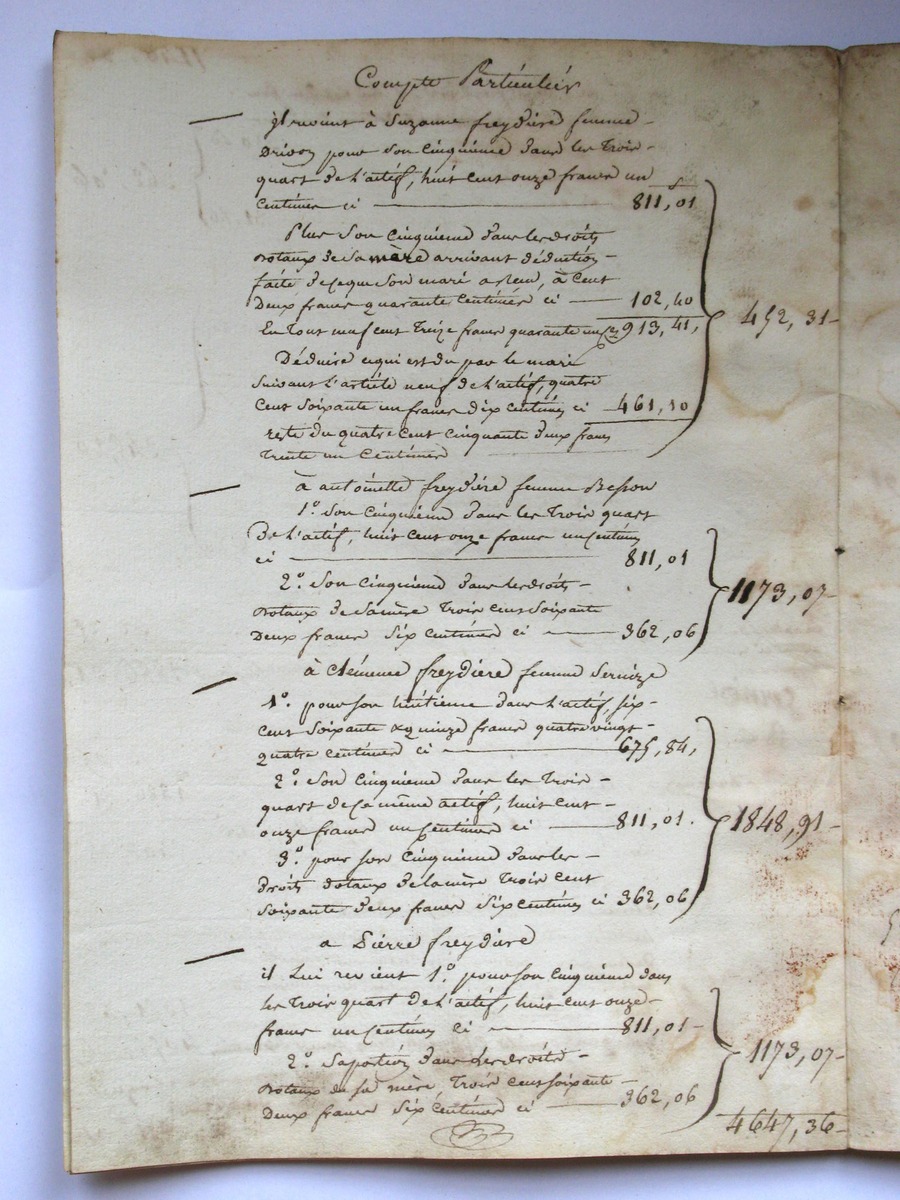 Compte Particulier
il revient à Suzanne freydière femme
Drivon pour son cinquième dans les Trois
quart de l'actif, huit cent onze francs un
centimes ci — 811,01
Plus Son cinquième dans les droits
Dotaux de Sa mère arrivant déduction
faite de ce que Son mari a reçu, à Cent
Deux francs quarante Centimes ci — 102,40
En Tout neuf cent Treize francs quarante un ces 913,41,
Déduire ce qui est du par le mari
Suivant l'article neuf de l'actif, quatre
Cent Soixante un francs Dix centimes ci 461,10
reste du quatre cent cinquante deux francs
Trente un Centimes 452,31
à antoinette freydière femme Besson
1º Son Cinquième dans les Trois quart
De l'actif, huit cent onze francs un Centime
ci — 811,01
2º Son Cinquième dans les droits
Dotaux de Sa mère Trois cent Soixante
Deux francs Six centimes ci — 362,06 1173,07
à Clémence freydière femme Servize
1º pour Son huitième dans l'actif, Six
cent Soixante & quinze francs quatre vingt
quatre centimes ci — 675,84,
2º Son Cinquième dans les Trois
quart de ce même actif, huit cent
onze francs un Centimes ci — 811,01. 1848,91
3º pour son Cinquième dans les
droits dotaux de la mère Trois Cent
Soixante deux francs Six centimes ci 362,06
a Pierre freydière
il Lui revient 1º pour Son Cinquième dans
les Trois quart de l'actif, huit cent onze
francs un Centimes ci — 811,01
2º Sa portion dans les droits
Dotaux de sa mère Trois cent soixante
Deux francs Six Centimes ci — 362,06 1173,07
4647,36